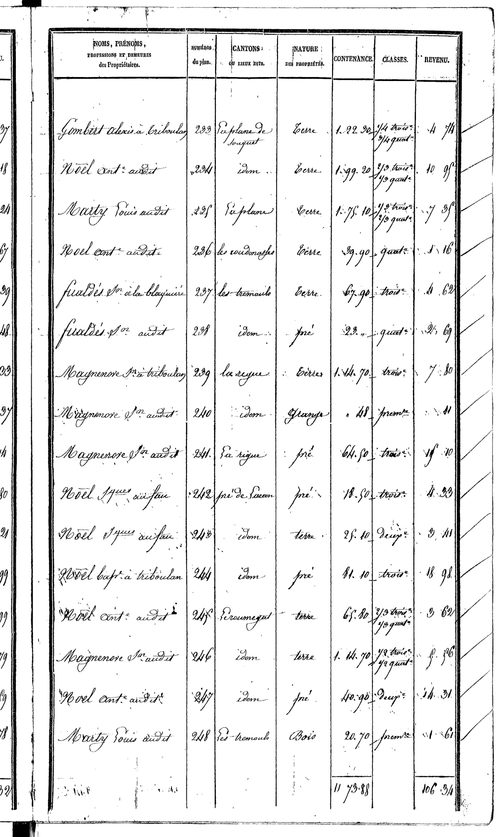 NOMS, PRÉNOMS, PROFESSIONS ET DEMEURES des Propriétaires. NUMÉROS du plan. CANTONS OU LIEUX DITS. NATURE DES PROPRIÉTÉS. CONTENANCE. CLASSES. REVENU.
Gombert alexis à triboulan 233 La plane de Terre 1. 22. 30 1/4 trois. 3/4 quat. 4 74
Noël ant. audit 234 idem Terre 1. 99. 20 10 95
Marty Louis audit 235 La plane Terre 1. 75. 10 7 35
Noël ant. audit 236 Terre 39. 90 quat. 1 16
fualdés Jn. à la 237 les tremouls Terre 67. 90 trois. 4 62
fualdés Jn. audit 238 idem pré 23. quat. 2 69
Magnenove Jn. à triboulan 239 la segue Terres 1. 14. 70 trois. 7 80
Magnenove Jn. audit 240 idem Grange 48 prem. 41
Magnenove Jn. audit 241 La rigue pré 64. 50 trois.
Noël Jques au fau 242 pré 18. 50 trois. 4 33
Noël Jques au fau 243 idem terre 25. 10 deux. 3 41
Noël Bapt. à triboulan 244 idem pré 81. 10 trois. 18 98
Noël ant. audit 245 terre 65. 80 2/3 trois. 1/3 quat. 3 62
Magnenove Jn. audit 246 idem terre 1. 14. 70 1/2 trois. 1/2 quat. 5 56
Noël ant. audit 247 idem pré 40. 90 deux. 14 31
Marty Louis audit 248 Les tremouls Bois 20. 70 prem. 1 61
11 73 88 106 34